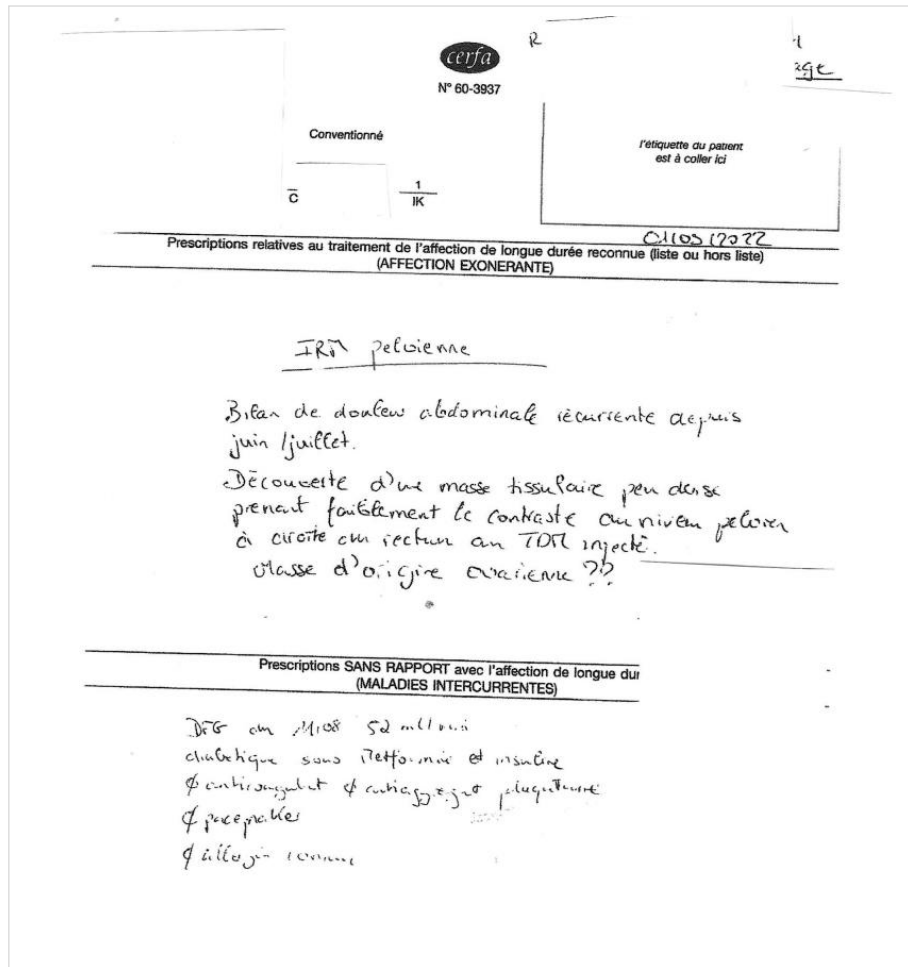 cerfa
R
N° 60-3937
age
Conventionné
l'étiquette du patient
est à coller ici
C
1
IK
01/09/2022
Prescriptions relatives au traitement de l'affection de longue durée reconnue (liste ou hors liste)
(AFFECTION EXONERANTE)
IRM pelvienne
Bilan de douleur abdominale récurrente depuis
juin/juillet.
Découverte d'une masse tissulaire peu dense
prenant faiblement le contraste au niveau pelvien
à droite du rectum au TDM injecté.
Masse d'origine ovarienne ??
Prescriptions SANS RAPPORT avec l'affection de longue dur
(MALADIES INTERCURRENTES)
DFG au 11/08 52 ml/min
diabétique sous Metformine et insuline
∅ anticoagulant ∅ antiaggrégant plaquettaire
∅ pacemaker
∅ allergie connue